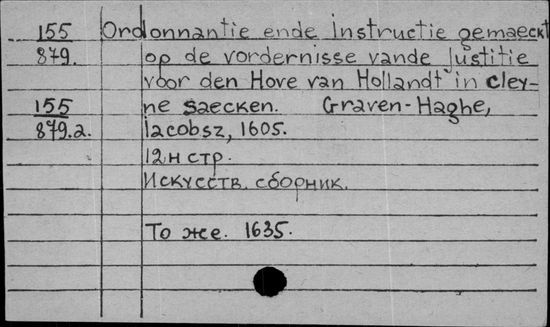 155 Ordonnantie ende Instructie gemaeckt
879. op de vordernisse vande Justitie
voor den Hove van Hollandt in cley-
155 ne saecken. Graven-Haghe,
879.a. Iacobsz, 1605.
12 н стр.
Искусств. сборник.
То же. 1635.